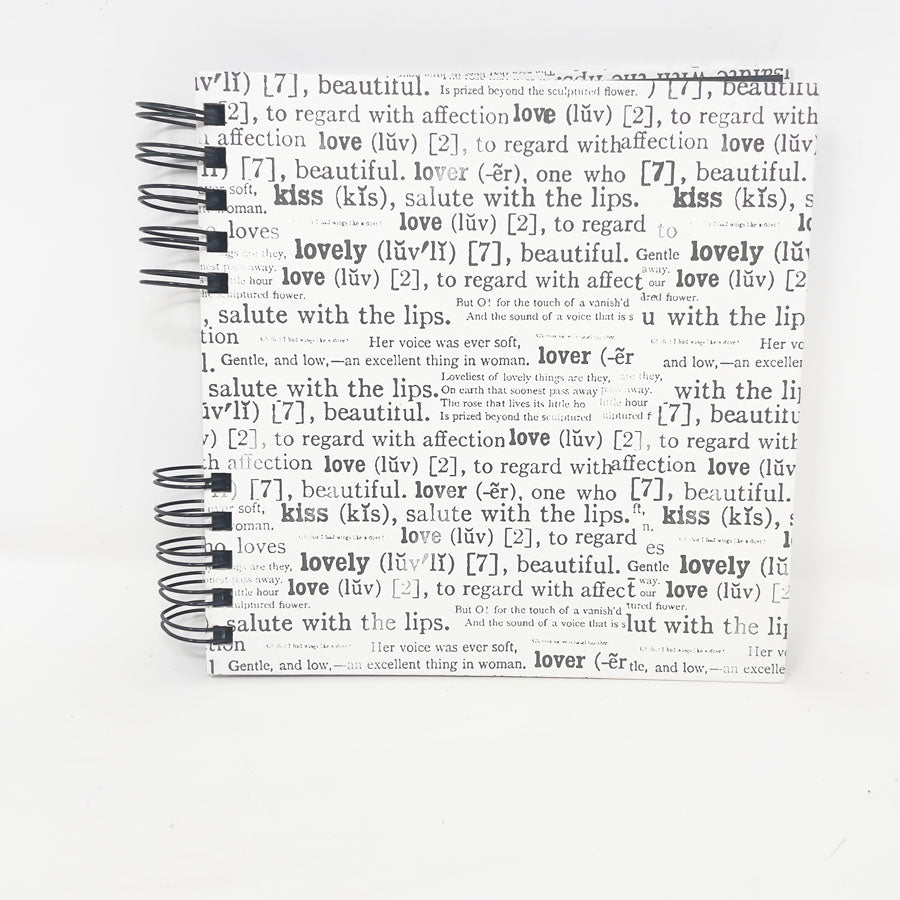 ŭv′lĭ) [7], beautiful. Is prized beyond the sculptured flower. ) [7], beautifu
[2], to regard with affection love (lŭv) [2], to regard with
h affection love (lŭv) [2], to regard with affection love (lŭv)
[7], beautiful. lover (-ẽr), one who [7], beautiful.
ver soft, kiss (kĭs), salute with the lips. kiss (kĭs), s
woman.
o loves love (lŭv) [2], to regard to lo
gs are they, lovely (lŭv′lĭ) [7], beautiful. Gentle lovely (lŭv
nest pass away. away.
tle hour love (lŭv) [2], to regard with affect our love (lŭv) [2
he sculptured flower. But O! for the touch of a vanish'd dred flower.
, salute with the lips. And the sound of a voice that is s u with the lip
tion Her voice was ever soft, Her vo
l. Gentle, and low,—an excellent thing in woman. lover (-ẽr and low,—an excellen
Loveliest of lovely things are they, are they,
salute with the lips. On earth that soonest pass away pass away. with the lip
The rose that lives its little ho little hour
ŭv′lĭ) [7], beautiful. Is prized beyond the sculptured ulptured f [7], beautifu
v) [2], to regard with affection love (lŭv) [2], to regard with
th affection love (lŭv) [2], to regard with affection love (lŭv
ĭ) [7], beautiful. lover (-ẽr), one who [7], beautiful.
ver soft, kiss (kĭs), salute with the lips. ft, kiss (kĭs), s
woman. n.
ho loves love (lŭv) [2], to regard es l
gs are they, lovely (lŭv′lĭ) [7], beautiful. Gentle lovely (lŭ
nest pass away. way.
ittle hour love (lŭv) [2], to regard with affect our love (lŭv) [2
ulptured flower. But O! for the touch of a vanish'd tured flower.
salute with the lips. And the sound of a voice that is s lut with the lip
tion Her voice was ever soft, Her v
l Gentle, and low,—an excellent thing in woman. lover (-ẽr tle, and low,—an excelle